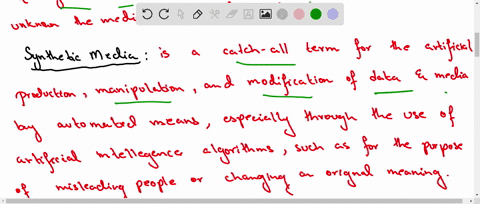 unknown the medi
Synthetic Media : is a catch-all term for the artificial
production, manipulation, and modification of data & media
by automated means, especially through the use of
artificial intellegence algorithms, such as for the purpose
of misleading people or changing an orignal meaning.